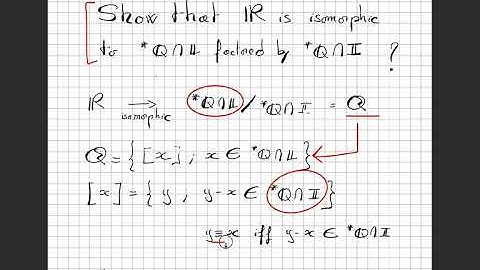 Show that ℝ is isomorphic
to *ℚ∩𝕃 factored by *ℚ∩𝕀 ?
ℝ → isomorphic *ℚ∩𝕃 / *ℚ∩𝕀 = Q
Q = { [x] ; x ∈ *ℚ∩𝕃 }
[x] = { y , y-x ∈ *ℚ∩𝕀 }
y≡x iff y-x ∈ *ℚ∩𝕀